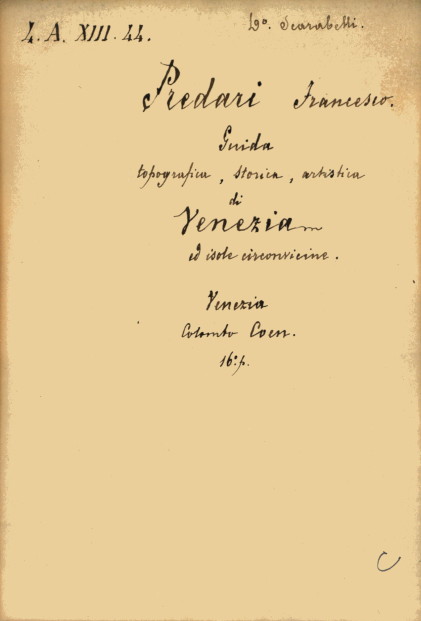 L. A. XIII. 44.
Do. Scarabelli.
Predari Francesco.
Guida
topografica, storica, artistica
di
Venezia
ed isole circonvicine.
Venezia
Colombo Coen.
16º p.
C